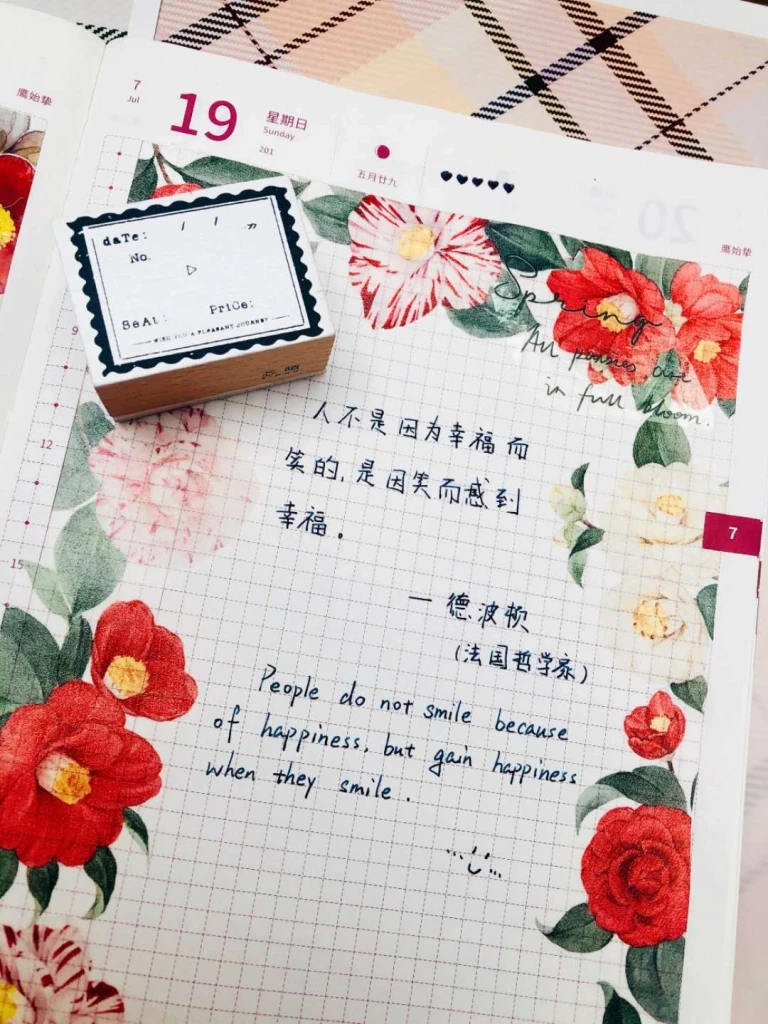 鹰始挚
7
Jul
19
星期日
Sunday
201
五月廿九
♥♥♥♥♥
20
鹰始挚
daTe: / /
No.
SeAt: PriCe:
WISH YOU A PLEASANT JOURNEY
Spring
All pansies are
in full bloom.
9
12
15
7
人不是因为幸福而
笑的,是因笑而感到
幸福。
— 德波顿
(法国哲学家)
People do not smile because
of happiness, but gain happiness
when they smile.